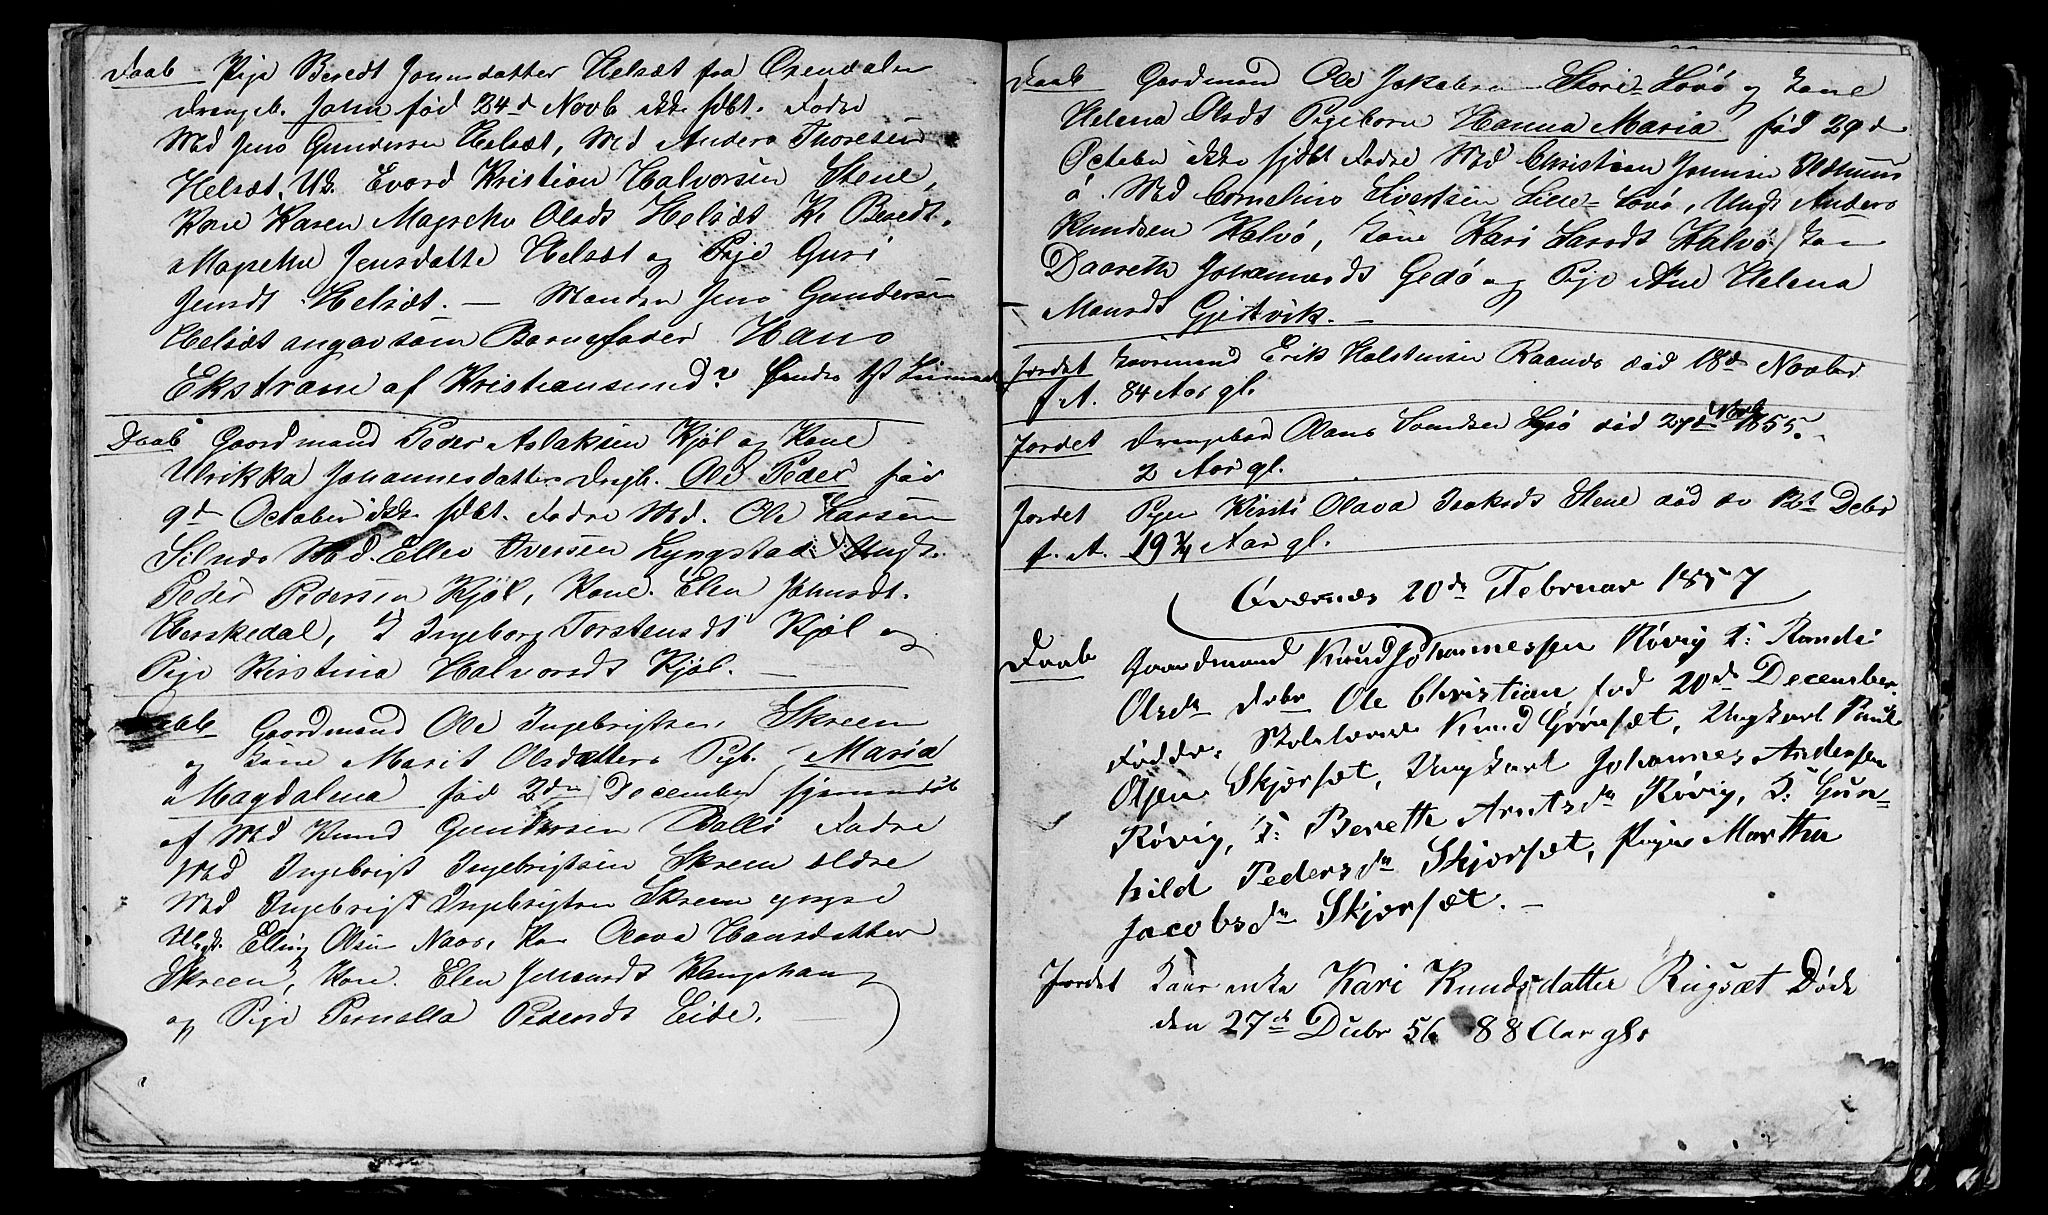 Daab Pige Beredt Jonsdatter Helsæt fra Orendalen
drengeb. John fød 24d Novb ikke hdbt. Fadre
Md Jens Gundersen Helsæt, Md Anders Thoresen
Helsæt, Uk. Evard Kristian Halvorsen Stene,
Kone Karen Magrethe Olsdt Helsæt K. Beredt
Magrethe Jensdatte Helsæt og Pige Guri
Jensdt Helsæt. — Manden Jens Gundersen
Helsæt angav som Barnefader Hans
Ekstrøm af Kristiansund?
Daab Gaardmand Peder Aslaksen Kjøl og Kone
Ulrikka Johannesdatter Drgb. Ole Peder fød
9d October ikke hdbt. Fadre Md. Ole Larsen
Silnes Md. Ellev Iversen Lyngstad Ungk.
Peder Pedersen Kjøl, Kone. Elen Johnsdt.
Herskedal, K Ingeborg Torstensdt Kjøl og
Pige Kirstina Halvorsdt Kjøl. —
Daab Gaardmand Ole Ingebrigtsen Skreen
og Kone Marit Olsdatter Pigb. Maria
Magdalena fød 2den December hjemmedøbt
af Md Knud Gundersen Bolli Fadre
Md Ingebrigt Ingebrigtsen Skrem eldre
Md Ingebrigt Ingebrigtsen Skrem yngre
Ungk. Elling Olsen Naas, Ko Olava Hansdatter
Skreen, Kone. Elen
og Pige Pernella Pedersdt Eide.
Daab Gaardmand Ole Jakobsen Store-Løvø og Kone
Helena Olsdt Pigeborn Hanna Maria fød 29d
October ikke hjdbt Fadre Md Christian Jonnsen
Md Cornelius Sivertsen Lille-Løvø, Ungk Anders
Knudsen Kalvø, Kone Kari Larsdt Kalvø, Kone
Daareth Johannesdt Gedø og Pige Ane Helena
Monsdt Gjestvik. —
Jordet Kaarmand Erik Halstensen Raanes død 18de Novbr
f. A. 84 Aar gl.
Jordet Drengebar Olaus død 27de Novb 1855.
2 Aar gl.
Jordet Pigen Kirsti Olava Isaksdt Stene død de 12t Debr
f. A. 19 3/4 Aar gl.
Øvernes 20de Februar 1857
Daab Gaardmand Knud Johannessen Røvig K: Randi
Olsdr debr Ole Christian fød 20de December.
Faddre: Skolelærer Knud Gørsæt, Ungkarl Paul
Olsen Skjørsæt, Ungkarl Johannes Andersen
Røvig, K: Bereth Arntsdr Røvig, K: Gun-
hild Pedersdr Skjørsæt, Pigen Martha
Jacobsdr Skjørsæt. —
Jordet Kaarenke Kari Knudsdatter Rugsæt Døde
den 27d Dcbr 56 88 Aar gl.